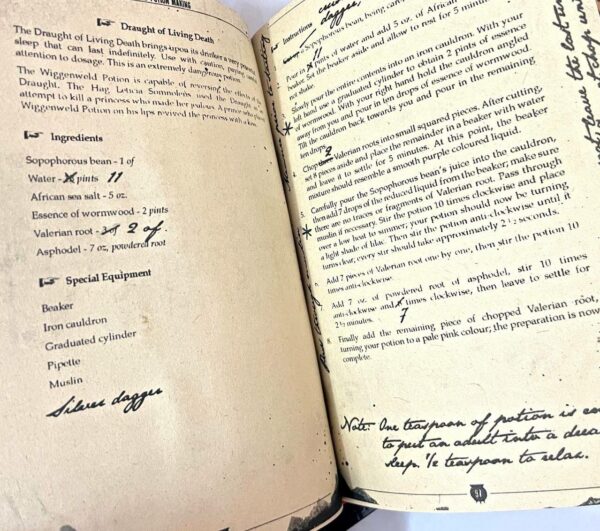 POTION MAKING
Draught of Living Death
The Draught of Living Death brings upon its drinker a very powerful
sleep that can last indefinitely. Use with caution, paying careful
attention to dosage. This is an extremely dangerous potion.
The Wiggenweld Potion is capable of reversing the effects of the
Draught. The Hag Leticia Somnolens used the Draught to
attempt to kill a princess who made her jealous. A prince who placed
Wiggenweld Potion on his lips revived the princess with a kiss.
Ingredients
Sopophorous bean - 1 of
Water - pints 11
African sea salt - 5 oz.
Essence of wormwood - 2 pints
Valerian root - 2 of.
Asphodel - 7 oz, powdered root
Special Equipment
Beaker
Iron cauldron
Graduated cylinder
Pipette
Muslin
Silver dagger
dagger,
Instructions
Sopophorous bean, being
Pour in 11 pints of water and add 5 oz. of African
beaker. Set the beaker aside and allow to rest for 5 minutes
not shake.
Slowly pour the entire contents into an iron cauldron. With your
left hand use a graduated cylinder to obtain 2 pints of essence
of wormwood. With your right hand hold the cauldron angled
away from you and pour in ten drops of essence of wormwood.
Tilt the cauldron back towards you and pour in the remaining
ten drops.
4. Chop 2 Valerian roots into small squared pieces. After cutting,
set 8 pieces aside and place the remainder in a beaker with water
and leave it to settle for 5 minutes. At this point, the beaker
mixture should resemble a smooth purple coloured liquid.
5. Carefully pour the Sopophorous bean's juice into the cauldron,
then add 7 drops of the reduced liquid from the beaker; make sure
there are no traces of fragments of Valerian root. Pass through
muslin if necessary. Stir the potion 10 times clockwise and place
over a low heat to simmer; your potion should now be turning
a light shade of lilac. Then stir the potion anti-clockwise until it
turns clear; every stir should take approximately 2 ½ seconds.
6. Add 7 pieces of Valerian root one by one, then stir the potion 10
times anti-clockwise.
7. Add 7 oz. of powdered root of asphodel, stir 10 times
anti-clockwise and times clockwise, then leave to settle for
2 ½ minutes. 7
8. Finally add the remaining piece of chopped Valerian root,
turning your potion to a pale pink colour; the preparation is now
complete.
leave the last
to chop
Note: One teaspoon of potion is
to put an adult into a
sleep. ½ teaspoon to relax.
91